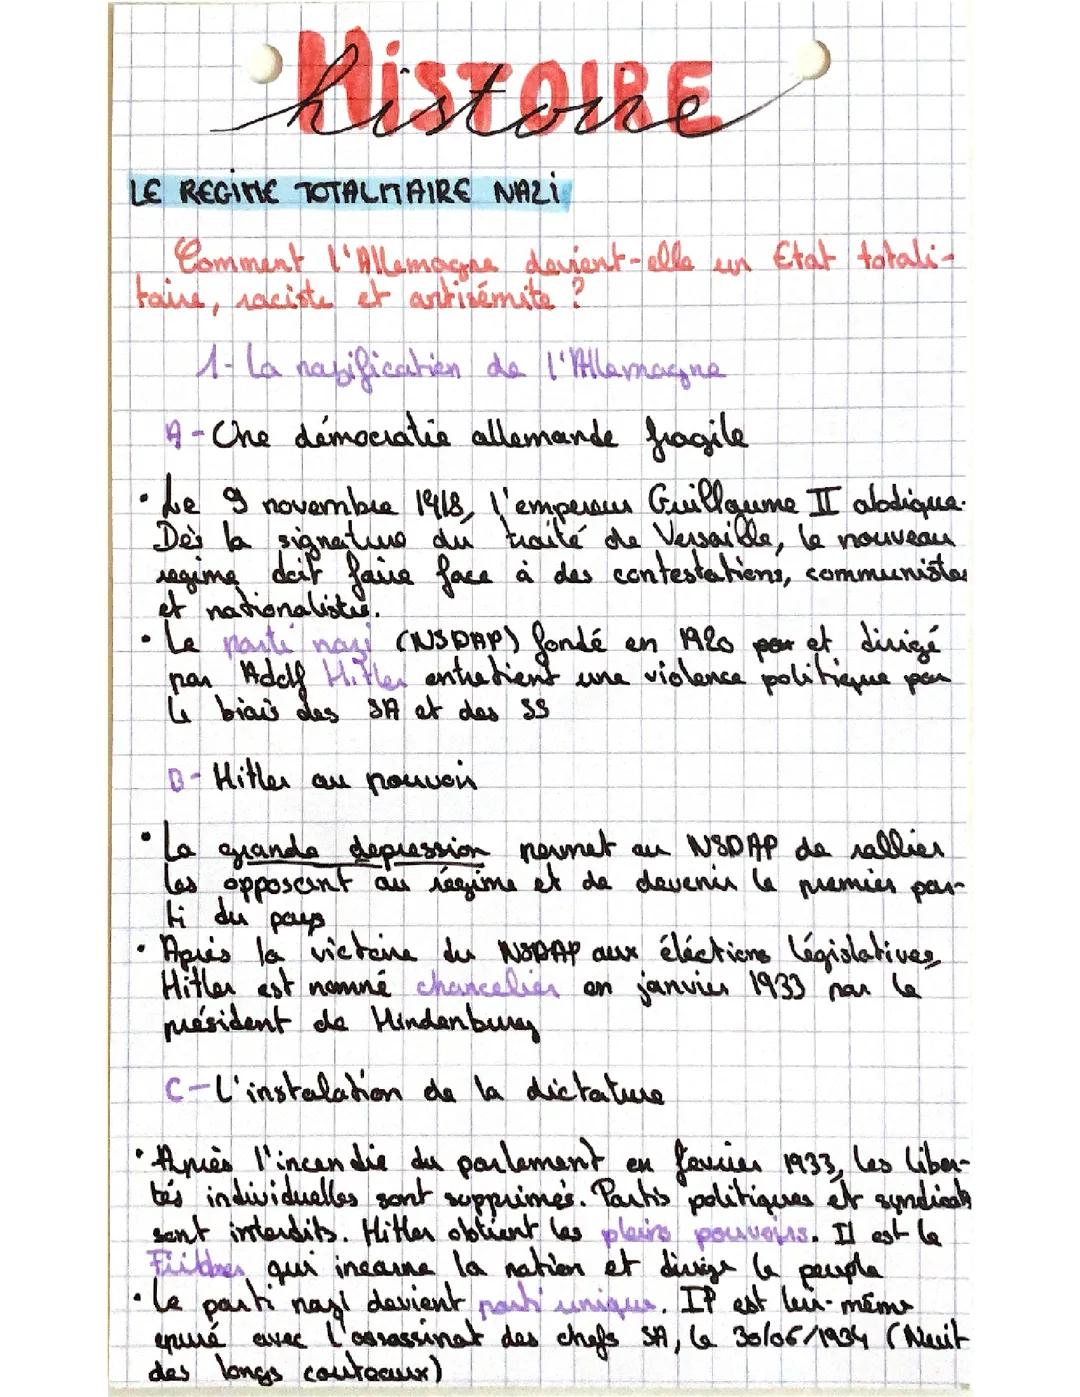 HISTOIRE
histoire
LE REGIME TOTALITAIRE NAZI
Comment l'Allemagne devient-elle un Etat totali-
taire, raciste et antisémite ?
1- La nazification de l'Allemagne
A - Une démocratie allemande fragile
• Le 9 novembre 1918, l'empereur Guillaume II abdique.
Dès la signature du traité de Versaille, le nouveau
regime doit faire face à des contestations, communistes
et nationalistes.
• Le parti nazi (NSDAP) fondé en 1920 par et dirigé
par Adolf Hitler entretient une violence politique par
le biais des SA et des SS
B - Hitler au pouvoir
• La grande depression permet au NSDAP de rallier
les opposant au régime et de devenir le premier par-
ti du pays
• Après la victoire du NSDAP aux éléctions législatives,
Hitler est nommé chancelier en janvier 1933 par le
président de Hindenburg
C - L'instalation de la dictature
• Après l'incendie du parlement en fevrier 1933, les liber-
tés individuelles sont supprimés. Partis politiques et syndicats
sont interdits. Hitler obtient les pleins pouvoirs. Il est le
Führer qui incarne la nation et dirige le peuple
• Le parti nazi devient parti unique. Il est lui-même
épuré avec l'assassinat des chefs SA, le 30/06/1934 (Nuit
des longs couteaux)